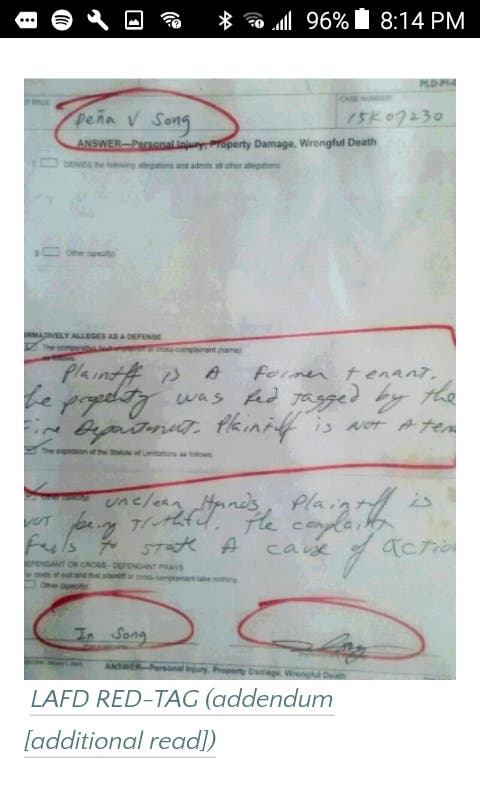 96% 8:14 PM
PLD-PI-
CASE NUMBER
Peña V Song
15K09230
ANSWER—Personal Injury, Property Damage, Wrongful Death
DENIES the following allegations and admits all other allegations
Other (specify)
RMATIVELY ALLEGES AS A DEFENSE
The comparative fault of plaintiff or cross-complainant (name)
Plaintff is A Former tenant.
he property was Red Tagged by the
Fire Department. Plaintiff is Not A ten
The expiration of the Statute of Limitations as follows
unclean Hands, Plaintff is
NOT being Truthful. The complaint
Fails to state A cause of actio
EFENDANT OR CROSS - DEFENDANT PRAYS
or costs of suit and that plaintiff or cross-complainant take nothing
Other (specify)
In Song
ANSWER—Personal Injury, Property Damage, Wrongful Death
LAFD RED-TAG (addendum
[additional read])